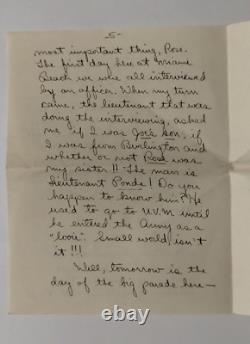 -5-
most important thing, Rose.
The first day here at Miami
Beach we were all interviewed
by an officer. When my turn
came, the lieutenant that was
doing the interviewing, asked
me if I was Joe's son, if
I was from Burlington and
whether or not Rose was
my sister!! The man is
Lieutenant Ponds! Do you
happen to know him? He
used to go to U.V.M. until
he entered the Army as a
"looie". Small world isn't
it!!!
Well, tomorrow is the
day of the big parade here—
ebay